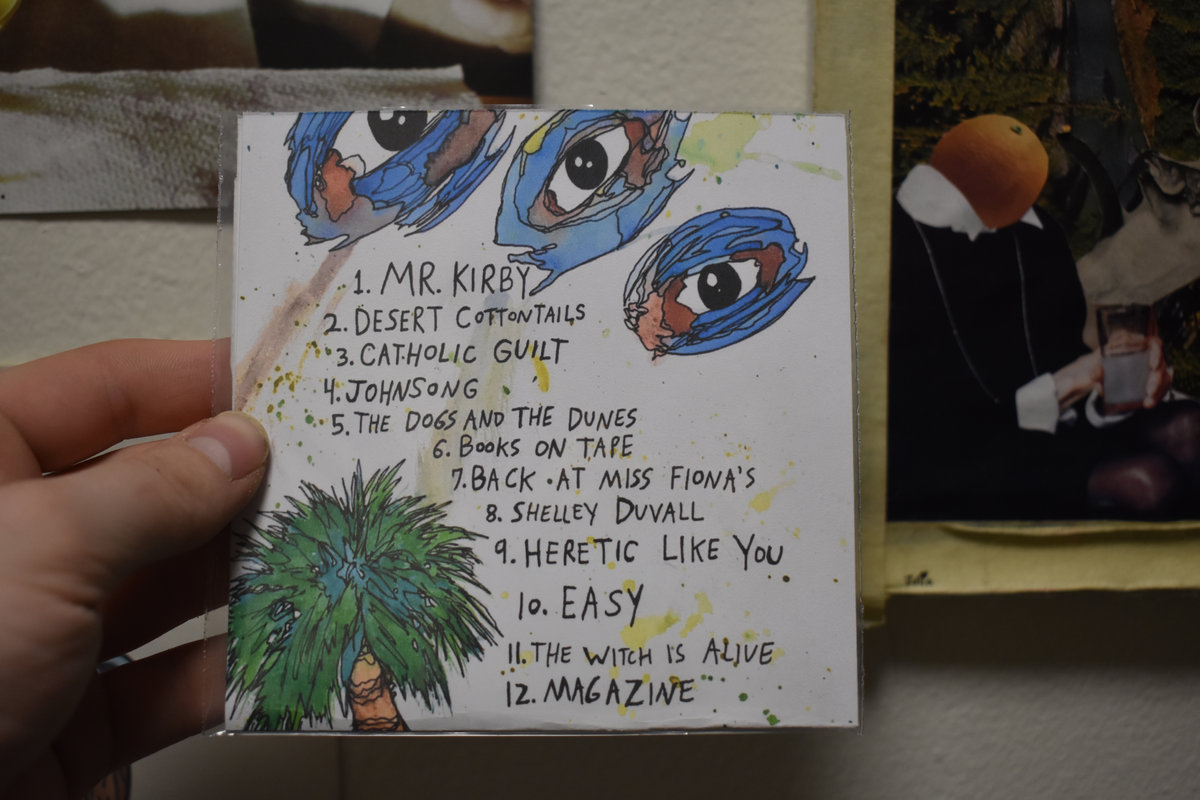 1. MR. KIRBY
2. DESERT COTTONTAILS
3. CATHOLIC GUILT
4. JOHNSONG
5. THE DOGS AND THE DUNES
6. BOOKS ON TAPE
7. BACK AT MISS FIONA'S
8. SHELLEY DUVALL
9. HERETIC LIKE YOU
10. EASY
11. THE WITCH IS ALIVE
12. MAGAZINE